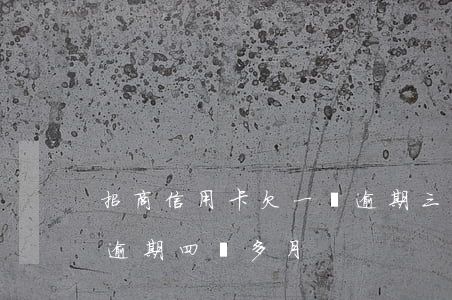 招商信用卡欠一▮逾期三
逾期四▮多月